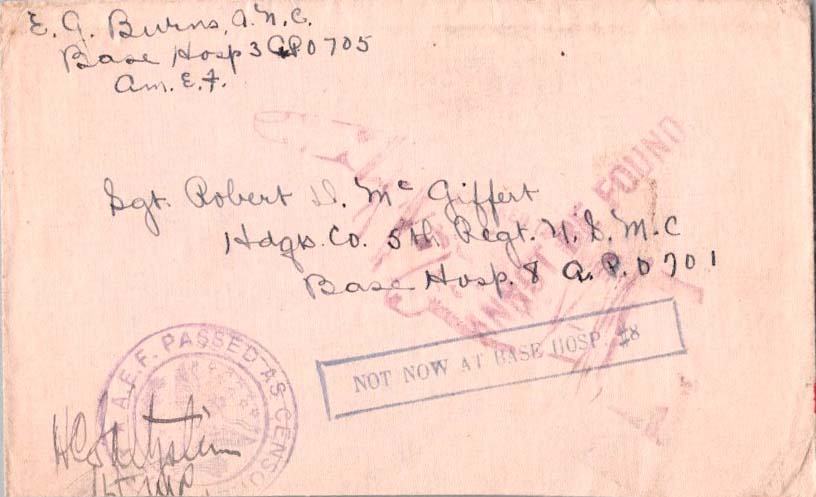 E. G. Burns, A.N.C.
Base Hosp 3 APO 705
Am. E. F.
Sgt. Robert D. Mc Giffert
Hdqs. Co. 5th Regt. U. S. M. C
Base Hosp. 8 A. P. O 701
CANNOT BE FOUND
NOT NOW AT BASE HOSP. #8
A.E.F. PASSED AS CENSO